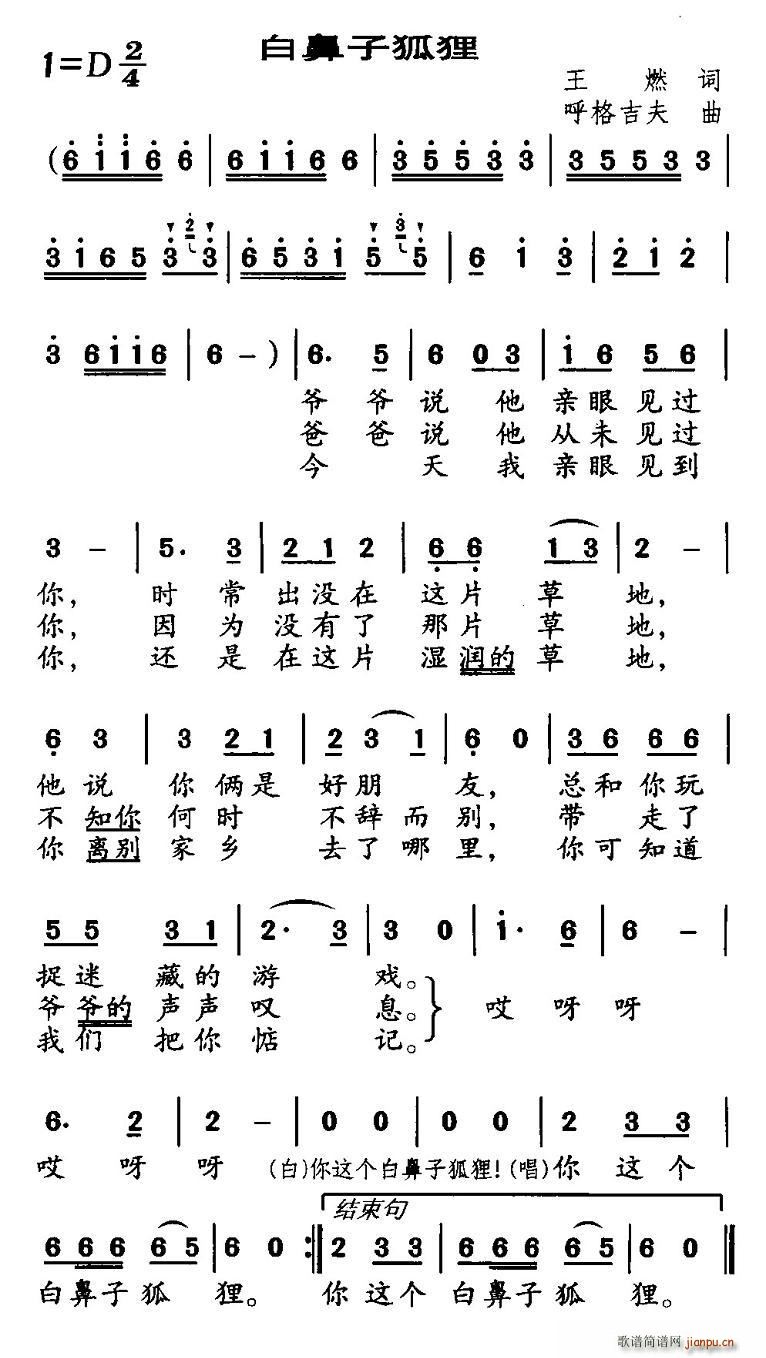 白鼻子狐狸
1=D 2/4
王燃 词
呼格吉夫 曲
(6 i i 6 6 | 6 i i 6 6 | 3 5 5 3 3 | 3 5 5 3 3 |
3 i 6 5 3 2 3 | 6 5 3 i 5 3 5 | 6 i 3 | 2 i 2 |
3 6 i i 6 | 6 - ) | 6. 5 | 6 0 3 | i 6 5 6 |
爷爷说他亲眼见过
爸爸说他从未见过
今天我亲眼见到
3 - | 5. 3 | 2 1 2 | 6 6 1 3 | 2 - |
你，时常出没在这片草地，
你，因为没有了那片草地，
你，还是在这片湿润的草地，
6 3 | 3 2 1 | 2 3 1 | 6 0 | 3 6 6 6 |
他说你俩是好朋友，总和你玩
不知你何时不辞而别，带走了
你离别家乡去了哪里，你可知道
5 5 3 1 | 2. 3 | 3 0 | i. 6 | 6 - |
捉迷藏的游戏。
爷爷的声声叹息。} 哎呀呀
我们把你惦记。
6. 2 | 2 - | 0 0 | 0 0 | 2 3 3 |
哎呀呀 (白)你这个白鼻子狐狸！(唱)你这个
结束句
6 6 6 6 5 | 6 0 :| 2 3 3 | 6 6 6 6 5 | 6 0 ‖
白鼻子狐狸。你这个白鼻子狐狸。
歌谱简谱网 jianpu.cn